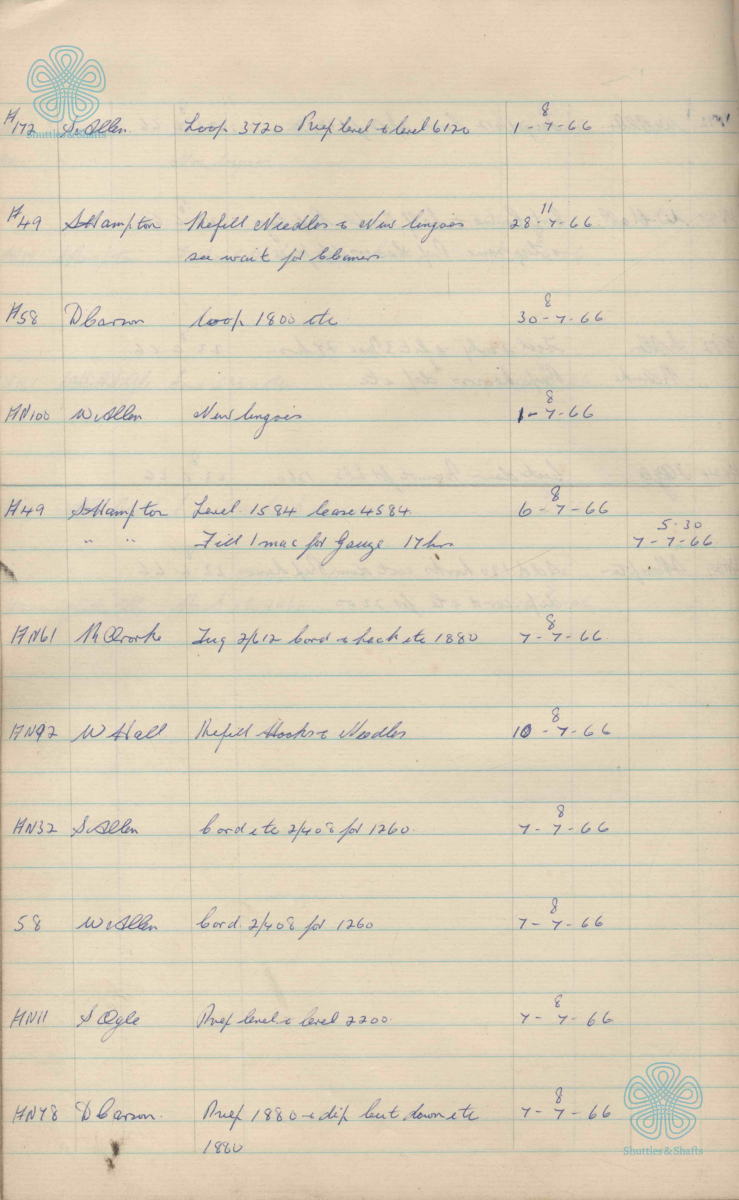 Shuttles & Shafts
8
H172 S. Allen Loop 3720 Prep level & level 6120 1-7-66
11
H49 S Hampton Refill Needles & New lingois 28-7-66
see wait for
8
H58 D Carson Loop 1800 etc 30-7-66
8
HN100 W. Allen New lingois 1-7-66
8
H49 S Hampton Level 1584 lease 4584 6-7-66
5-30
" " Fill 1 mac for Gauze 17 hrs 7-7-66
8
HN61 2/612 Cord & heck etc 1880 7-7-66
8
HN92 W Hall Refill Hooks & Needles 10-7-66
8
HN32 S. Allen Cord etc 2/408 for 1260 7-7-66
8
58 W. Allen Cord 2/408 for 1260 7-7-66
8
HN11 S Ogle Prep level & level 2200 7-7-66
8
HN78 D Carson. Prep 1880 & dip cut down etc 7-7-66
1880
Shuttles & Shafts